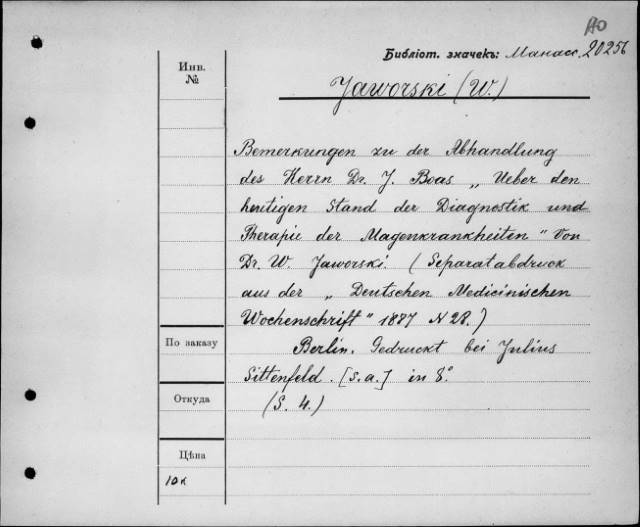 АО
Библіот. значекъ: Манасс. 20256
Инв.
№
Jaworski (W.)
Bemerkungen zu der Abhandlung
des Herrn Dr. J. Boas „Ueber den
heutigen Stand der Diagnostik und
Therapie der Magenkrankheiten" Von
Dr. W. Jaworski. (Separatabdruck
aus der „Deutschen Medicinischen
Wochenschrift" 1887 N 28.)
По заказу
Berlin. Gedruckt bei Julius
Sittenfeld. [s.a.] in 8°
Откуда
(S. 4.)
Цѣна
10к